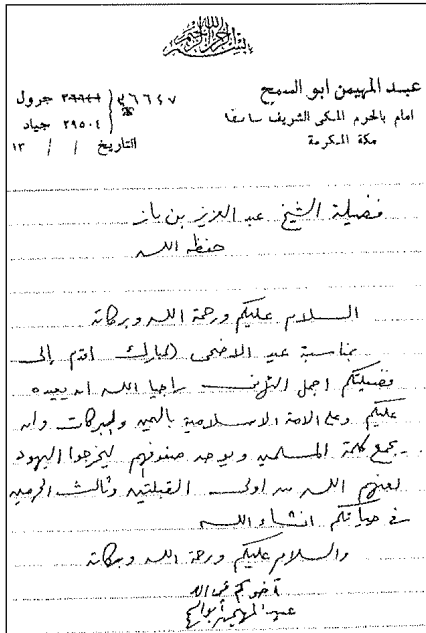 بسم الله الرحمن الرحيم
عبد المهيمن ابو السمح
امام بالحرم المكي الشريف سابقا
مكة المكرمة
٣٦٦٤٧
جرول
٢٩٥٠٤ جياد
التاريخ / / ١٣
فضيلة الشيخ عبد العزيز بن باز
حفظه الله
السلام عليكم ورحمة الله وبركاته
بمناسبة عيد الاضحى المبارك اقدم إلى
فضيلتكم اجمل التهاني راجيا الله ان يعيده
عليكم وعلى الامة الاسلامية باليمن والبركات وان
يجمع كلمة المسلمين ويوحد صفوفهم ليخرجوا اليهود
لعنهم الله من اولى القبلتين وثالث الحرمين
في حياتكم انشاء الله
والسلام عليكم ورحمة الله وبركاته
اخوكم في الله
عبد المهيمن أبو السمح